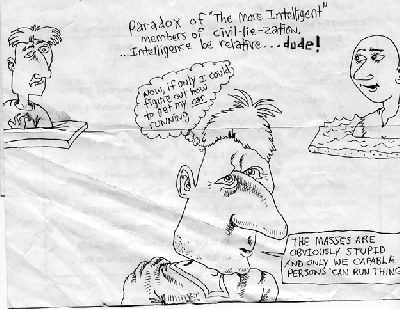 Paradox of "The More Intelligent"
members of civil-lie-zation.
...Intelligence be relative...dude!
Now, if only I could
figure out how
to get my car
running
THE MASSES ARE
OBVIOUSLY STUPID
AND ONLY WE CAPABLE
PERSONS CAN RUN THING